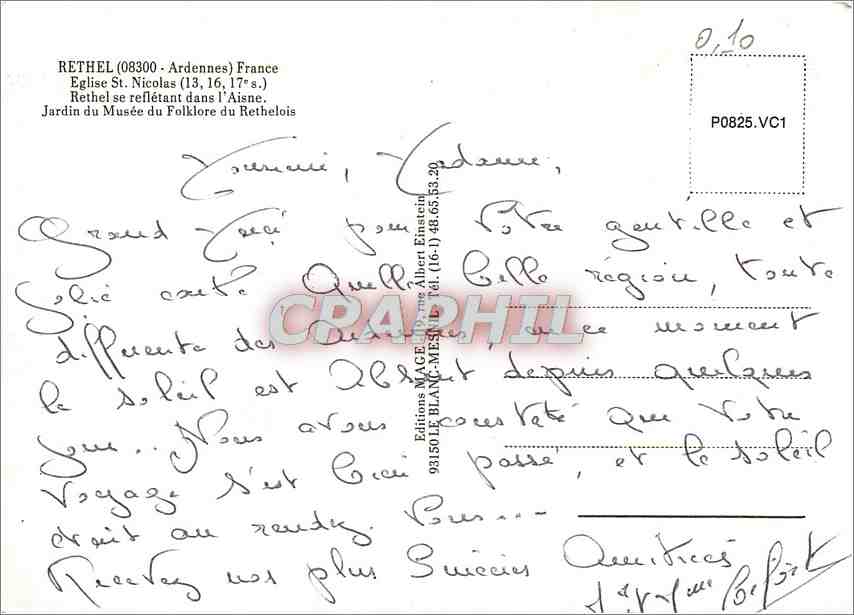 0,10
RETHEL (08300 - Ardennes) France
Eglise St. Nicolas (13, 16, 17e s.)
Rethel se reflétant dans l'Aisne.
Jardin du Musée du Folklore du Rethelois
P0825.VC1
Editions MAGE 19, rue Albert Einstein
93150 LE BLANC-MESNIL Tél. (16-1) 48.65.53.20
CPAPHIL
Monsieur, Madame,
Grand Merci pour Votre gentille et
Jolie carte Quelle belle région, toute
différente des Ardennes, en ce moment
le soleil est Absent depuis quelques
jours... Nous avons constaté que Votre
Voyage s'est bien passé, et le soleil
était au rendez Vous...
Recevez nos plus Sincères Amitiés